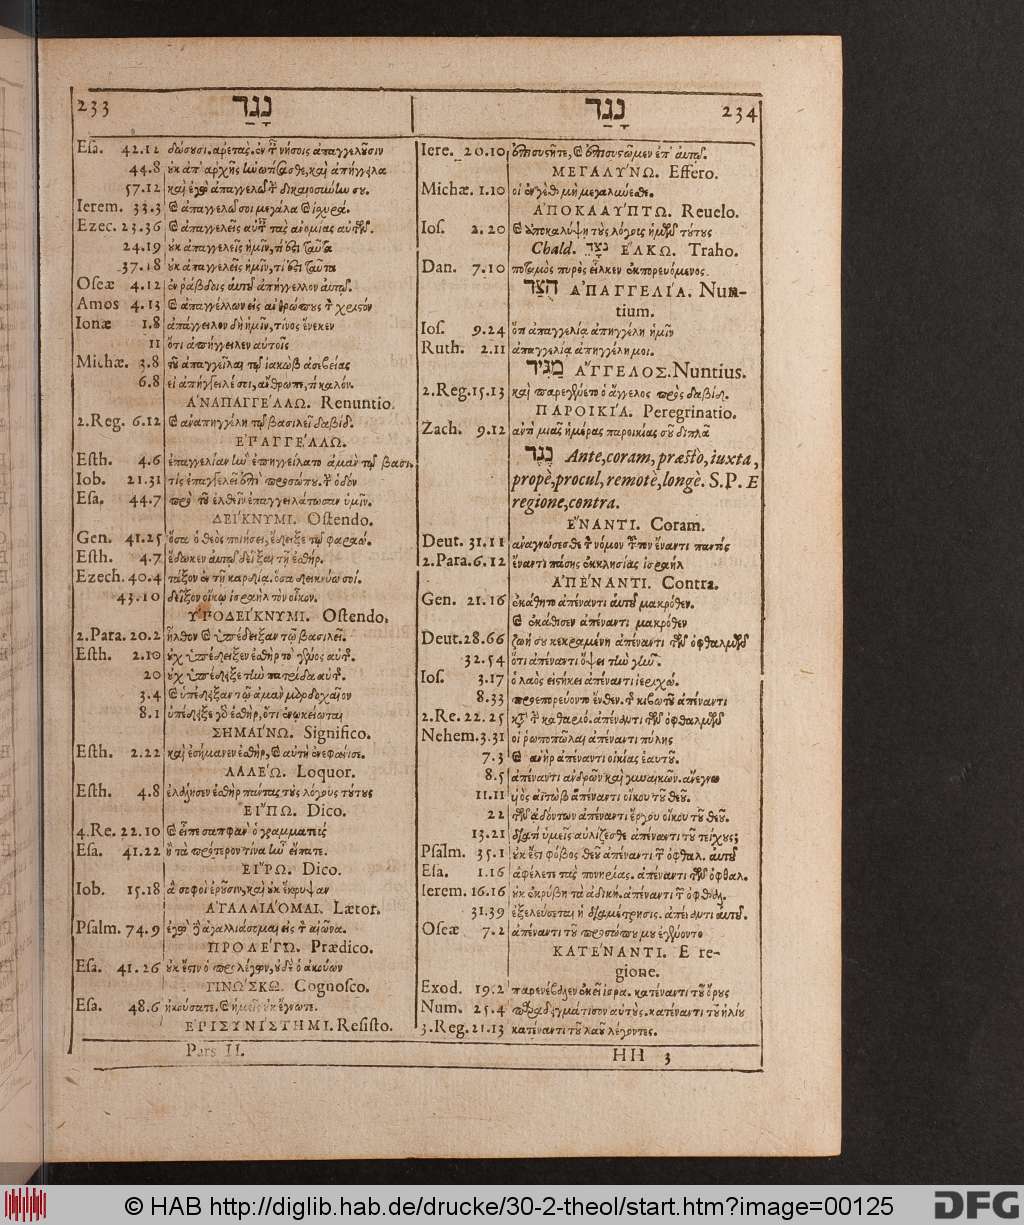 233 נָגַד
Esa. 42.12 δώσουσι. ἀρετὰς. ἐν τ νήσοις ἀπαγγελοῦσιν
44.8 οὐκ ἀπ' ἀρχῆς ἠνωτίσασθε, καὶ ἀπήγγειλα
57.12 καὶ ἐγὼ ἀπαγγελῶ τ δικαιοσύνην σου.
Ierem. 33.3 καὶ ἀπαγγελῶ σοι μεγάλα καὶ ἰσχυρά.
Ezec. 23.36 καὶ ἀπαγγελεῖς αὐτ τὰς ἀνομίας αὐτῶν.
24.19 οὐκ ἀπαγγελεῖς ἡμῖν, τί ἐστι ταῦτα
37.18 οὐκ ἀπαγγελεῖς ἡμῖν, τί ἐστι ταῦτα
Oseæ 4.12 ἐν ῥάβδοις αὐτοῦ ἀπήγγελλον αὐτῷ.
Amos 4.13 καὶ ἀπαγγέλλων εἰς ἀνθρώπους τ χριστόν
Ionæ 1.8 ἀπάγγειλον δὴ ἡμῖν, τίνος ἕνεκεν
11 ὅτι ἀπήγγειλεν αὐτοῖς
Michæ. 3.8 τοῦ ἀπαγγεῖλαι τῷ ἰακὼβ ἀσεβείας
6.8 εἰ ἀπηγγείλέ σοι, ἄνθρωπε, τί καλόν.
ἈΝΑΠΑΓΓΈΛΛΩ. Renuntio.
2.Reg. 6.12 καὶ ἀναπηγγέλη τῷ βασιλεῖ δαβίδ.
ἘΠΑΓΓΈΛΛΩ.
Esth. 4.6 ἐπαγγελίαν ἣν ἐπηγγείλατο ἀμὰν τῷ βασι.
Iob. 21.31 τίς ἐπαγγελεῖ ἐπὶ προσώπου. τ ὁδὸν
Esa. 44.7 πρὸ τοῦ ἐλθεῖν ἐπαγγειλάτωσαν ὑμῖν.
ΔΕΊΚΝΥΜΙ. Ostendo.
Gen. 41.25 ὅσα ὁ θεὸς ποιήσει, ἔδειξε τῷ φαραώ.
Esth. 4.7 ἔδωκεν αὐτῷ δεῖξαι τῇ ἐσθήρ.
Ezech. 40.4 τάξον ἐν τῇ καρδίᾳ. ὅσα δεικνύω σοί.
43.10 δεῖξον οἴκῳ ἰσραὴλ τὸν οἶκον.
ὙΠΟΔΕΊΚΝΥΜΙ. Ostendo.
2.Para. 20.2 ἦλθον καὶ ὑπέδειξαν τῷ βασιλεῖ.
Esth. 2.10 οὐχ ὑπέδειξεν ἐσθὴρ τὸ γένος αὐτ.
20 οὐχ ὑπέδειξε τὴν πατρίδα αὐτ.
3.4 καὶ ὑπέδειξαν τῷ ἀμὰν μαρδοχαῖον
8.1 ὑπέδειξε γὰρ ἐσθὴρ, ὅτι ἐνῳκείωται
ΣΗΜΑΊΝΩ. Significo.
Esth. 2.22 καὶ ἐσήμανεν ἐσθὴρ, καὶ αὐτὴ ἐνεφάνισε.
ΛΑΛΈΩ. Loquor.
Esth. 4.8 ἐλάλησεν ἐσθὴρ πάντας τοὺς λόγους τούτους
ΕἼΠΩ. Dico.
4.Re. 22.10 καὶ εἶπε σαπφὰν ὁ γραμματεύς
Esa. 41.22 ἢ τὰ πρότερον τίνα ἦν εἴπατε.
ΕἼΡΩ. Dico.
Iob. 15.18 ἃ σοφοὶ ἐροῦσιν, καὶ οὐκ ἔκρυψαν
ἈΓΑΛΛΙΆΟΜΑΙ. Lætor.
Psalm. 74.9 ἐγὼ δὲ ἀγαλλιάσομαι εἰς τ αἰῶνα.
ΠΡΟΛΈΓΩ. Prædico.
Esa. 41.26 οὐκ ἔστιν ὁ προλέγων, οὐδὲ ὁ ἀκούων
ΓΙΝΏΣΚΩ. Cognosco.
Esa. 48.6 ἠκούσατε. καὶ ἡμεῖς οὐκ ἔγνωτε.
ἘΠΙΣΥΝΊΣΤΗΜΙ. Resisto.
Pars II.
נָגַד 234
Iere. 20.10 ἐπισύστητε, καὶ ἐπισυστῶμεν ἐπ' αὐτῷ.
ΜΕΓΑΛΎΝΩ. Effero.
Michæ. 1.10 οἱ ἐν γὲθ μὴ μεγαλύνεσθε.
ἈΠΟΚΑΛΎΠΤΩ. Reuelo.
Ios. 2.20 καὶ ἀποκαλύψῃ τοὺς λόγοις ἡμῶν τούτους
Chald. נְגַד ἝΛΚΩ. Traho.
Dan. 7.10 ποταμὸς πυρὸς εἷλκεν ἐκπορευόμενος.
הֻגַּד ἈΠΑΓΓΕΛΊΑ. Nun-
tium.
Ios. 9.24 ὅτι ἀπαγγελίᾳ ἀπηγγέλη ἡμῖν
Ruth. 2.11 ἀπαγγελίᾳ ἀπηγγέλη μοι.
מַגִּיד ἌΓΓΕΛΟΣ. Nuntius.
2.Reg. 15.13 καὶ παρεγένετο ὁ ἄγγελος πρὸς δαβίδ.
ΠΑΡΟΙΚΊΑ. Peregrinatio.
Zach. 9.12 ἀντὶ μιᾶς ἡμέρας παροικίας σοῦ διπλᾶ
נֶגֶד Ante, coram, præsto, iuxta,
propè, procul, remotè, longè. S.P. E
regione, contra.
ἜΝΑΝΤΙ. Coram.
Deut. 31.11 ἀναγνώσεσθε τ νόμον τοῦτον ἔναντι παντός
2.Para. 6.12 ἔναντι πάσης ἐκκλησίας ἰσραήλ
ἈΠΈΝΑΝΤΙ. Contra.
Gen. 21.16 ἐκάθητο ἀπέναντι αὐτοῦ μακρόθεν.
καὶ ἐκάθισεν ἀπέναντι μακρόθεν
Deut. 28.66 ζωή σου κεκραμένη ἀπέναντι τῶν ὀφθαλμῶν
32.54 ὅτι ἀπέναντι ὄψει τὴν γῆν.
Ios. 3.17 ὁ λαὸς εἱστήκει ἀπέναντι ἱεριχώ.
8.33 προεπορεύοντο ἔνθεν. τ κιβωτοῦ ἀπέναντι
2.Re. 22.25 κτ τ καθαριό. ἀπέναντι τῶν ὀφθαλμῶν
Nehem. 3.31 οἱ ῥωποπῶλαι ἀπέναντι πύλης
7.3 καὶ ἀνὴρ ἀπέναντι οἰκίας ἑαυτοῦ.
8.5 ἀπέναντι ἀνδρῶν καὶ γυναικῶν. ἀνέγνω
11.11 υἱὸς αἰτὼβ ἀπέναντι οἴκου τοῦ θεοῦ.
22 τῶν ᾀδόντων ἀπέναντι ἔργου οἴκου τοῦ θεοῦ.
13.21 διατί ὑμεῖς αὐλίζεσθε ἀπέναντι τοῦ τείχους;
Psalm. 35.1 οὐκ ἔστι φόβος θεοῦ ἀπέναντι τ ὀφθαλ. αὐτοῦ
Esa. 1.16 ἀφέλετε τὰς πονηρίας. ἀπέναντι τῶν ὀφθαλ.
Ierem. 16.16 οὐκ ἐκρύβη τὰ ἀδική. ἀπέναντι τ ὀφθαλ.
31.39 ἐξελεύσεται ἡ διαμέτρησις. ἀπέναντι αὐτοῦ.
Oseæ 7.2 ἀπέναντι τοῦ προσώπου μου ἐγένοντο
ΚΑΤΈΝΑΝΤΙ. E re-
gione.
Exod. 19.2 παρενέβαλεν ἐκεῖ ἰσρα. κατέναντι τοῦ ὄρους
Num. 25.4 παραδειγμάτισον αὐτούς. κατέναντι τοῦ ἡλίου
3.Reg. 21.13 κατέναντι τοῦ λαοῦ λέγοντες.
HH 3
© HAB http://diglib.hab.de/drucke/30-2-theol/start.htm?image=00125
DFG